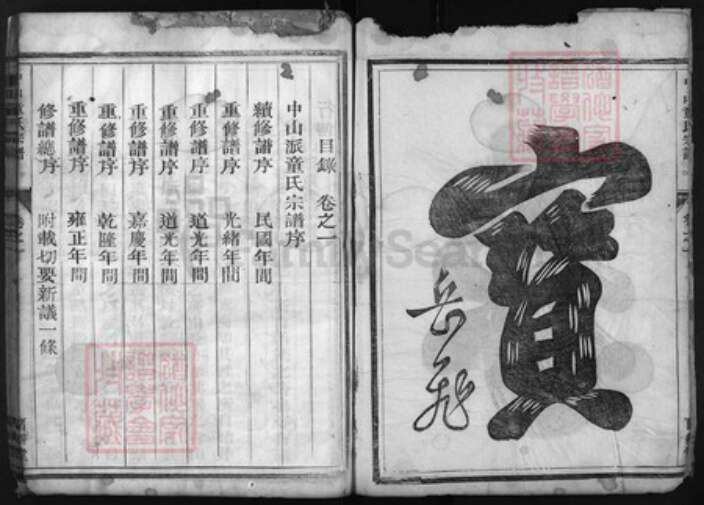 寶
岳飛
目錄 卷之一
中山派童氏宗譜序
續修譜序 民國年間
重修譜序 光緒年間
重修譜序 道光年間
重修譜序 道光年間
重修譜序 嘉慶年間
重修譜序 乾隆年間
重修譜序 雍正年間
修譜總序 附載切要新議一條